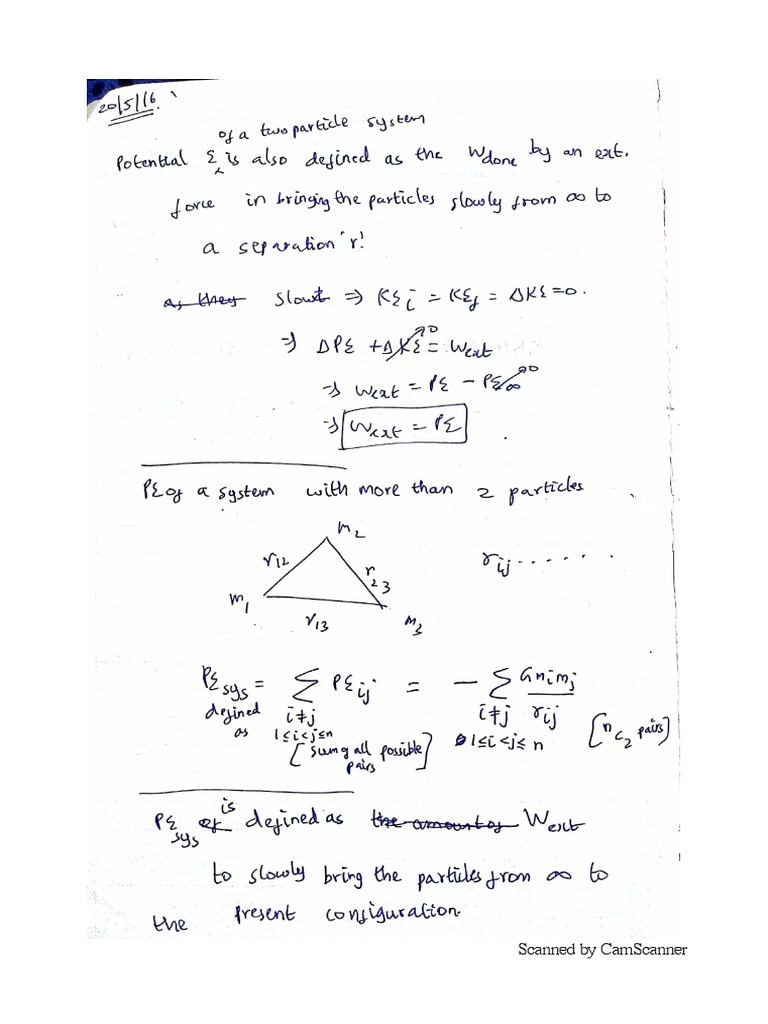 20/5/16.
of a two particle system
Potential E is also defined as the Wdone by an ext.
force in bringing the particles slowly from ∞ to
a separation 'r'.
as they slowt ⇒ KEi = KEf = ΔKE = 0.
⇒ ΔPE + ΔKE→0 = Wext
⇒ Wext = PE - PE∞→0
⇒ Wext = PE
PE of a system with more than 2 particles
m2
r12 r23 rij ......
m1
r13 m3
PEsys = Σ PEij = - Σ Gmimj / rij
defined as i≠j i≠j [nC2 pairs]
1≤i<j≤n 1≤i<j≤n
[sum of all possible pairs]
PEsys of is defined as the amount of Wext
to slowly bring the particles from ∞ to
the present configuration.
Scanned by CamScanner